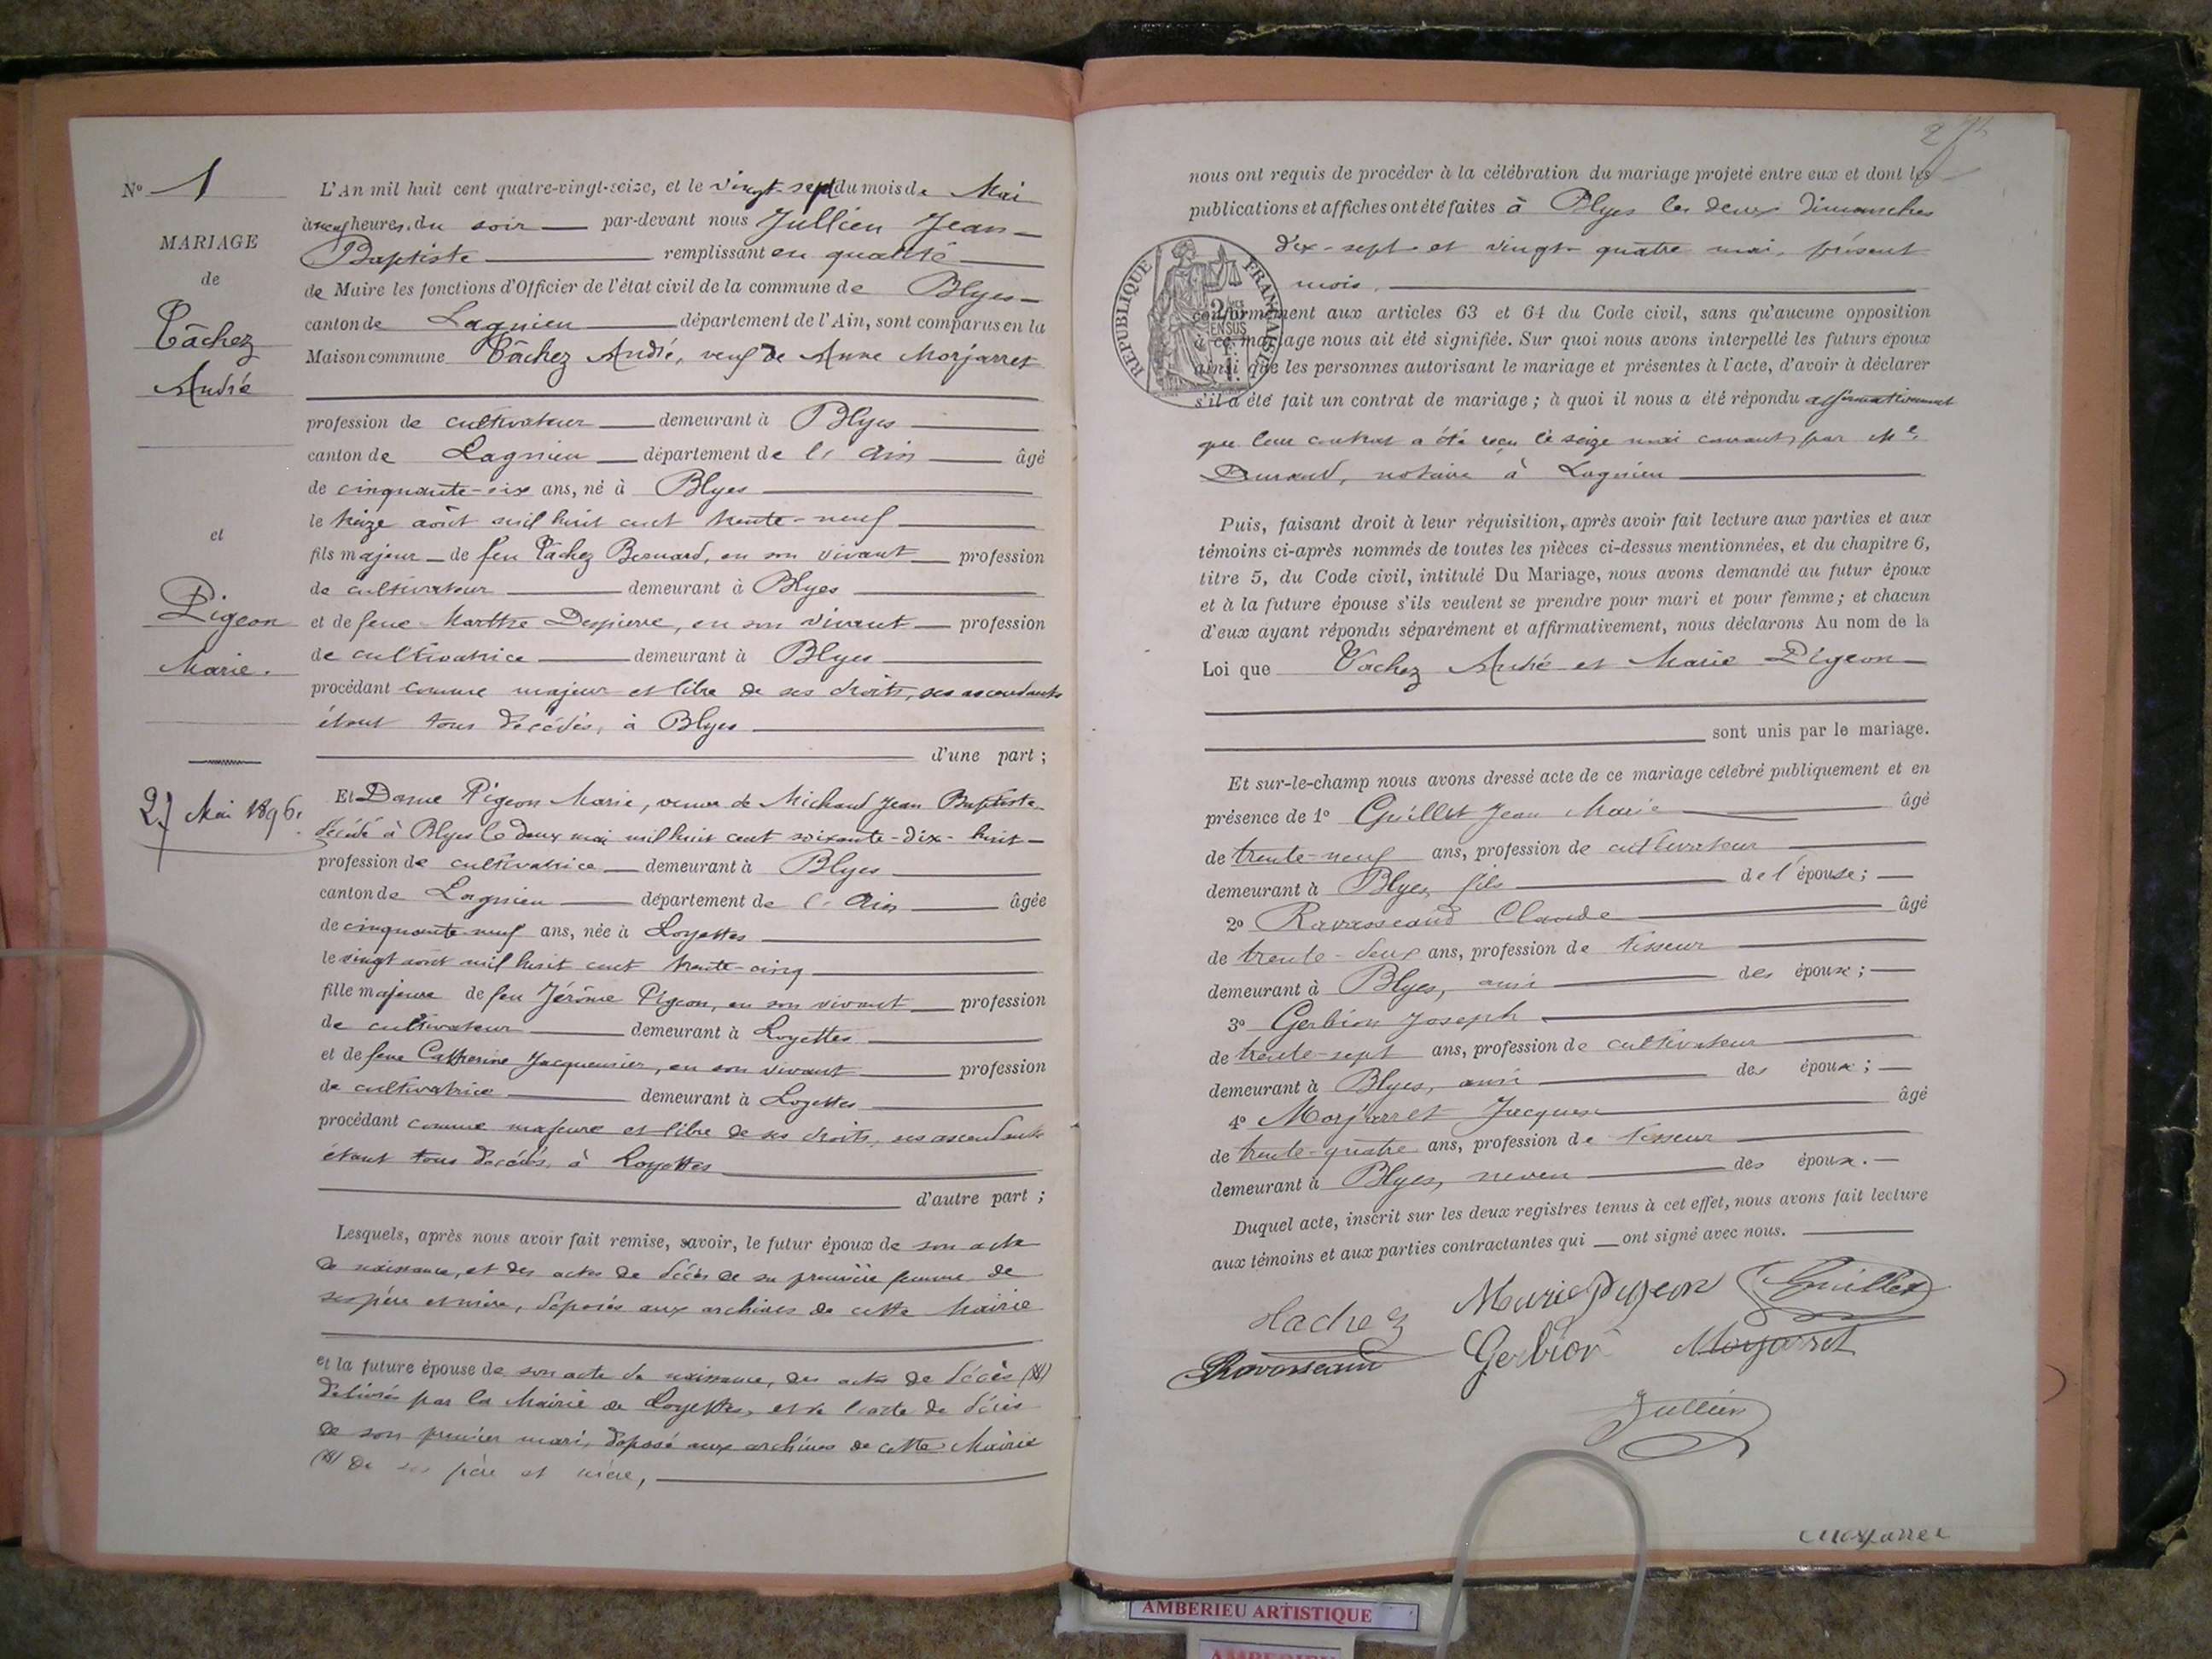 N° 1
MARIAGE
de
Vâchez
André
et
Pigeon
Marie.
27 Mai 1896.
L'An mil huit cent quatre-vingt-seize, et le vingt-sept du mois de Mai
à neuf heures, du soir par-devant nous Jullien Jean-
Baptiste remplissant en qualité
de Maire les fonctions d'Officier de l'état civil de la commune de Blyes
canton de Lagnieu département de l'Ain, sont comparus en la
Maison commune Vâchez André, veuf de Anne Morjarret
profession de cultivateur demeurant à Blyes
canton de Lagnieu département de l'Ain âgé
de cinquante-six ans, né à Blyes
le treize août mil huit cent trente-neuf
fils majeur de feu Vâchez Bernard, en son vivant profession
de cultivateur demeurant à Blyes
et de feue Marthe Despierre, en son vivant profession
de cultivatrice demeurant à Blyes
procédant comme majeur et libre de ses droits, ses ascendants
étant tous décédés, à Blyes
d'une part ;
Et Dame Pigeon Marie, veuve de Michaud Jean Baptiste
décédé à Blyes le deux mai mil huit cent soixante-dix-huit
profession de cultivatrice demeurant à Blyes
canton de Lagnieu département de l'Ain âgée
de cinquante-neuf ans, née à Loyettes
le vingt août mil huit cent trente-cinq
fille majeure de feu Jérôme Pigeon, en son vivant profession
de cultivateur demeurant à Loyettes
et de feue Catherine Jacquemier, en son vivant profession
de cultivatrice demeurant à Loyettes
procédant comme majeure et libre de ses droits, ses ascendants
étant tous décédés, à Loyettes
d'autre part ;
Lesquels, après nous avoir fait remise, savoir, le futur époux de son acte
de naissance, et des actes de décès de sa première femme de
ses père et mère, déposés aux archives de cette Mairie
et la future épouse de son acte de naissance, des actes de décès (X)
délivrés par la Mairie de Loyettes, et de l'acte de décès
de son premier mari, déposé aux archives de cette Mairie
(X) de ses père et mère,
27
nous ont requis de procéder à la célébration du mariage projeté entre eux et dont les
publications et affiches ont été faites à Blyes les deux dimanches
dix-sept et vingt-quatre mai, présent
mois.
RÉPUBLIQUE FRANÇAISE
conformément aux articles 63 et 64 du Code civil, sans qu'aucune opposition
à ce mariage nous ait été signifiée. Sur quoi nous avons interpellé les futurs époux
ainsi que les personnes autorisant le mariage et présentes à l'acte, d'avoir à déclarer
s'il a été fait un contrat de mariage ; à quoi il nous a été répondu affirmativement
que leur contrat a été reçu le seize mai courant, par Me
Durand, notaire à Lagnieu
Puis, faisant droit à leur réquisition, après avoir fait lecture aux parties et aux
témoins ci-après nommés de toutes les pièces ci-dessus mentionnées, et du chapitre 6,
titre 5, du Code civil, intitulé Du Mariage, nous avons demandé au futur époux
et à la future épouse s'ils veulent se prendre pour mari et pour femme ; et chacun
d'eux ayant répondu séparément et affirmativement, nous déclarons Au nom de la
Loi que Vachez André et Marie Pigeon
sont unis par le mariage.
Et sur-le-champ nous avons dressé acte de ce mariage célébré publiquement et en
présence de 1° Guillet Jean Marie âgé
de trente-neuf ans, profession de cultivateur
demeurant à Blyes, fils de l'épouse ;
2° Ravasseaud Claude âgé
de trente-deux ans, profession de tisseur
demeurant à Blyes, ami des époux ;
3° Gerbion Joseph
de trente-sept ans, profession de cultivateur
demeurant à Blyes, ami des époux ;
4° Morjarret Jacques âgé
de trente-quatre ans, profession de tisseur
demeurant à Blyes, neveu des époux.
Duquel acte, inscrit sur les deux registres tenus à cet effet, nous avons fait lecture
aux témoins et aux parties contractantes qui ont signé avec nous.
Vachez Marie Pigeon Guillet
Ravasseaud Gerbion Morjarret
Jullien
AMBERIEU ARTISTIQUE
AMBERIEU